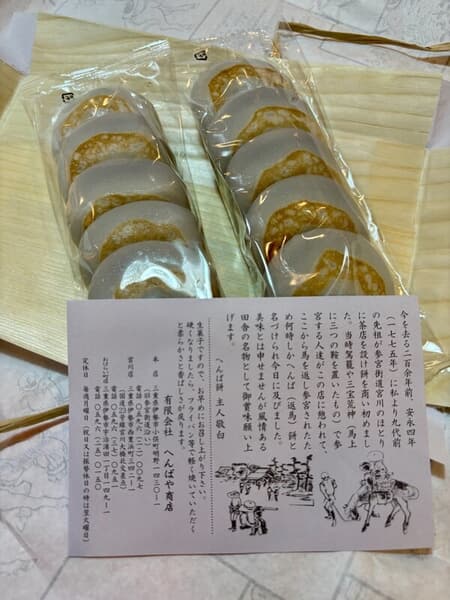 今を去る二百余年前、安永四年
(一七七五年)に私より九代前
の先祖が参宮街道宮川のほとり
に茶店を設け餅を商い初めまし
た。当時駕籠や三宝荒神(馬上
に三つの鞍を置いたもの)で参
宮する人達がこの店に憩われて、
ここから馬を返し参宮されたた
め何時しかへんば(返馬)餅と
名づけられ今日に及びました。
美味とは申せませんが風情ある
田舎の名物として御賞味願い上
げます。
へんば餅 主人敬白
生菓子ですので、お早めにお召し上がり下さい。
硬くなりましたら、フライパン等で軽く焼いていただく
と柔らかさと香ばしさが戻ります。
有限会社 へんばや商店
本店 三重県伊勢市小俣町明野一四三〇ー一
(旧参宮街道沿い)
電話〇五九六(二二)〇〇九七
宮川店 三重県伊勢市
おはらい町店 三重県伊勢市宇治浦田一丁目一四九ー一
電話〇五九六(二五)〇一五〇
定休日 毎週月曜日(祝日又は振替休日の時は翌火曜日)